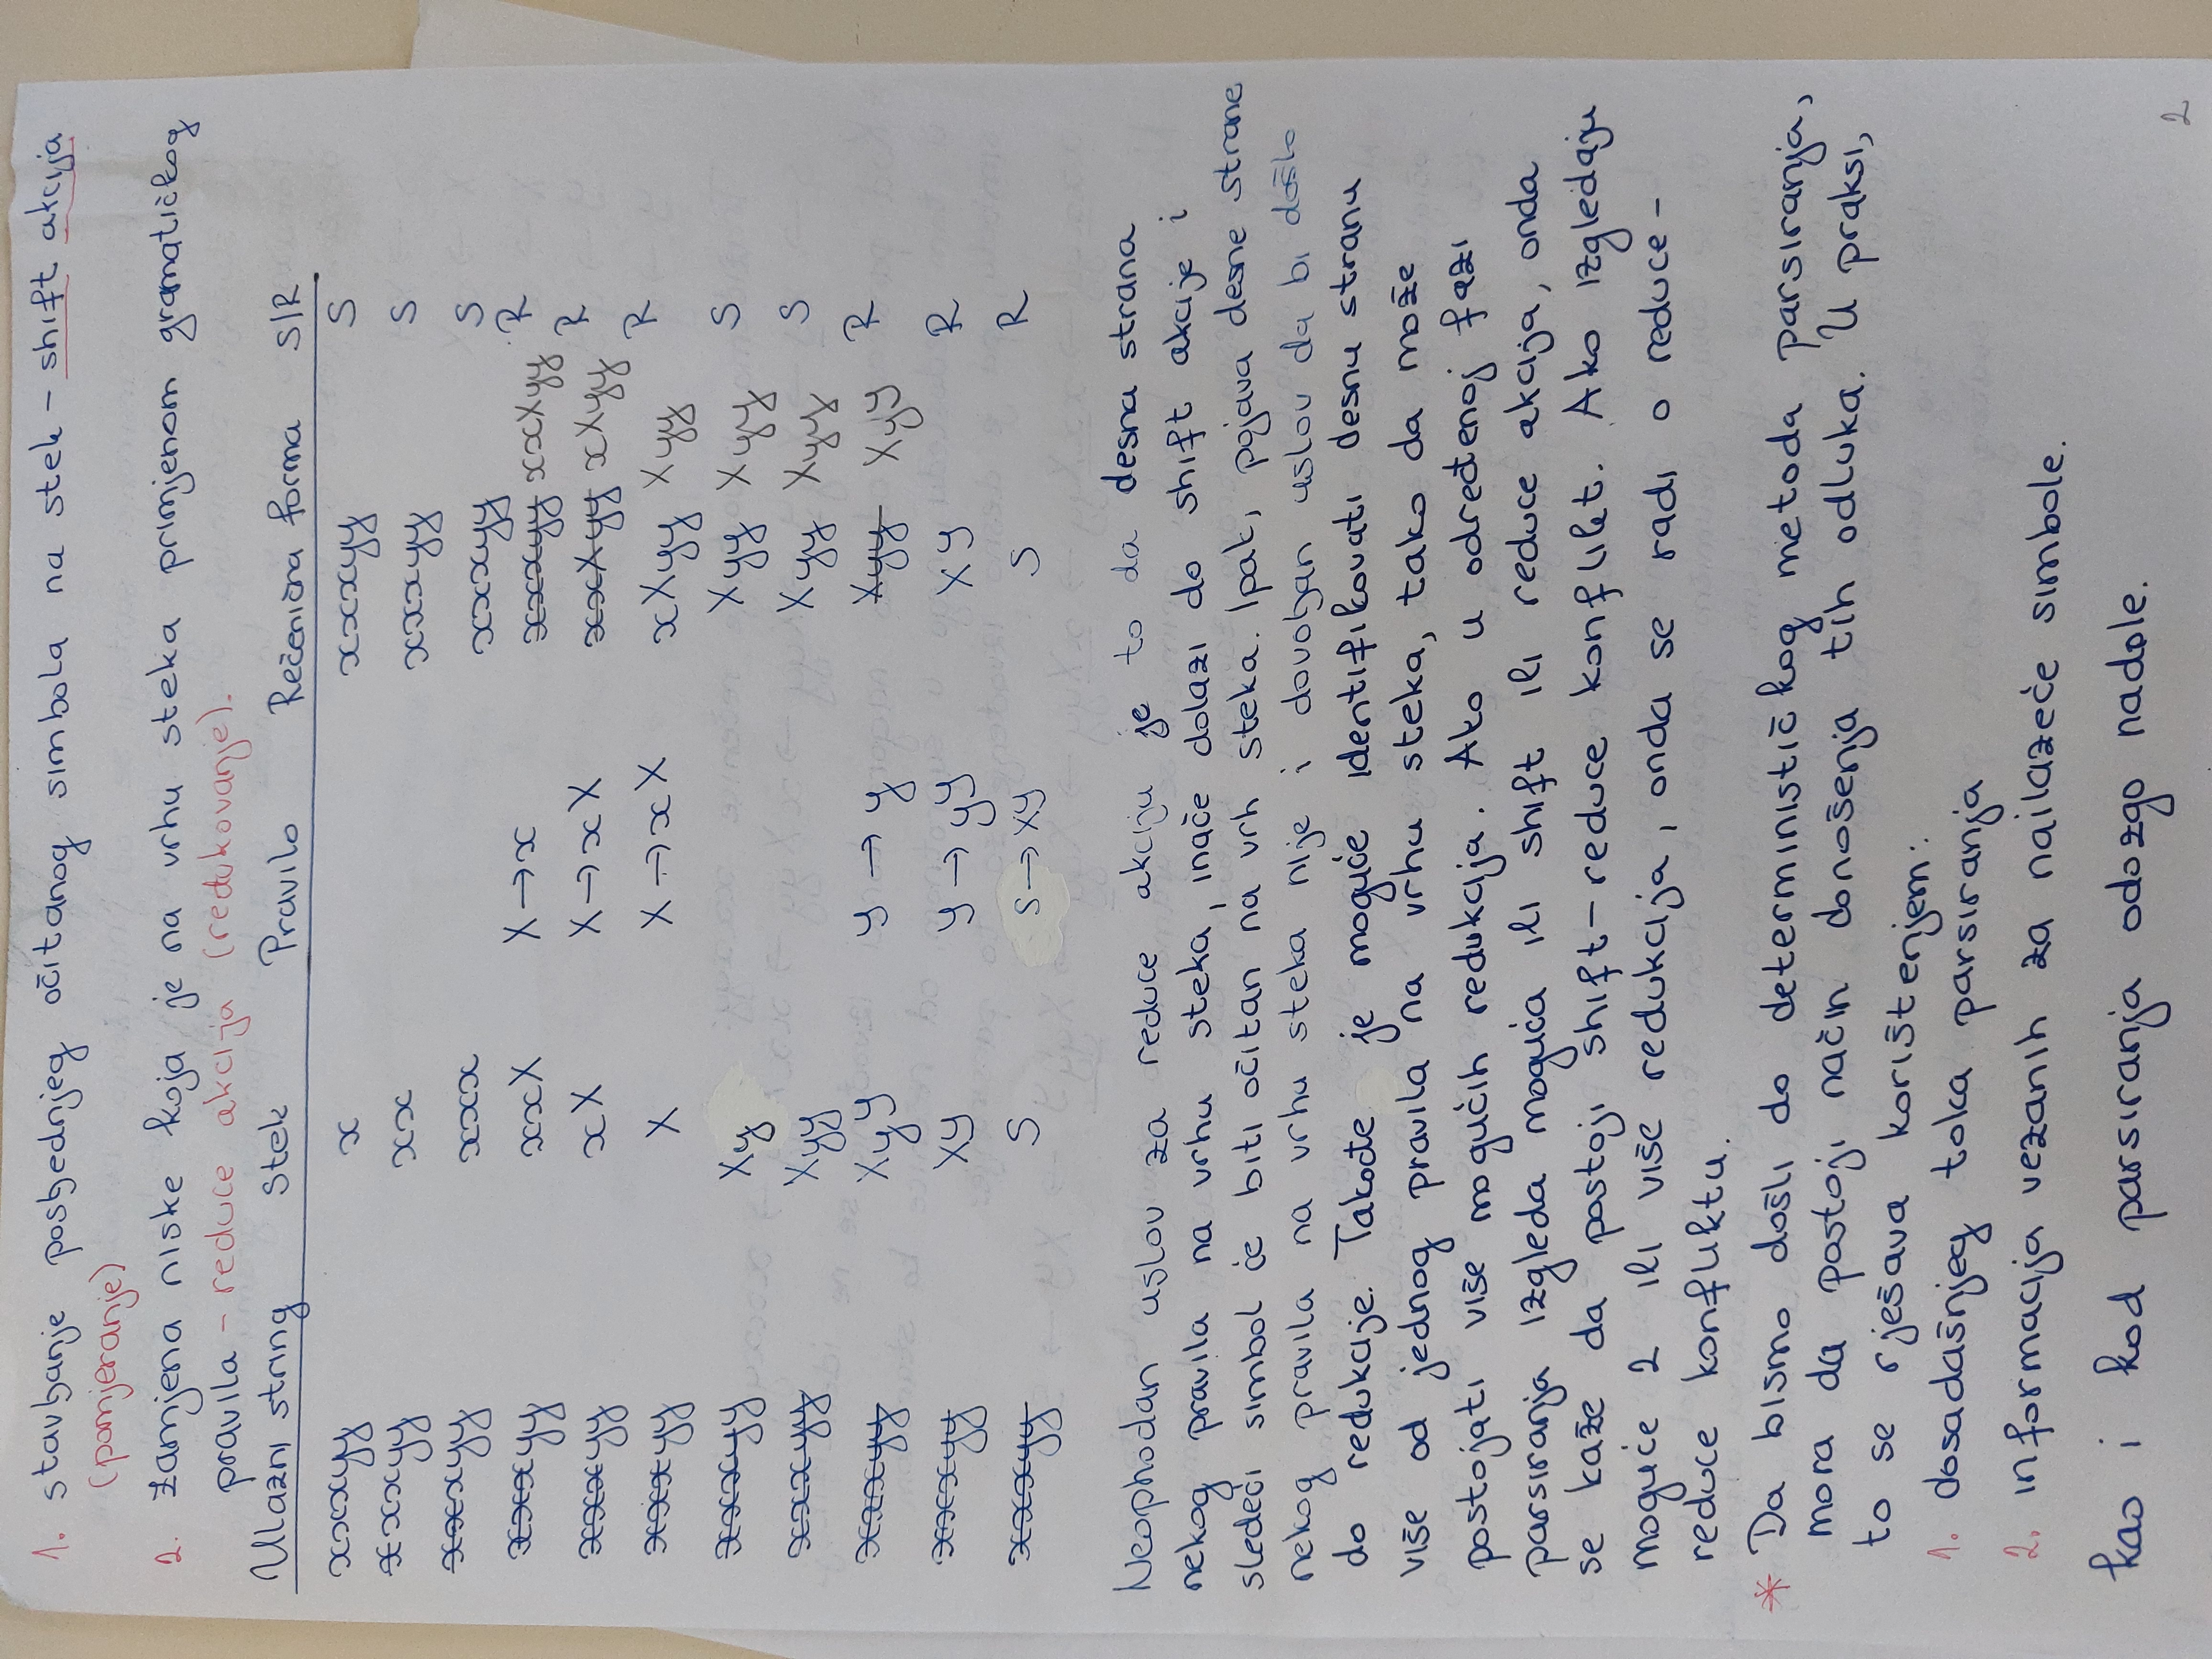 1. stavljanje posljednjeg očitanog simbola na stek – shift akcija
(pomjeranje)
2. zamjena niske koja je na vrhu steka primjenom gramatičkog
pravila – reduce akcija (redukovanje).
Ulazni string Stek Pravilo Rečenična forma S/R
xxxyy x xxxyy S
xxxyy xx xxxyy S
xxxyy xxx xxxyy S
xxxyy xxX X → x xxxyy xxXyy R
xxxyy xX X → xX xxXyy xXyy R
xxxyy X X → xX xXyy Xyy R
xxxyy Xy Xyy Xyy S
xxxyy Xyy Xyy Xyy S
xxxyy XyY Y → y Xyy XyY R
xxxyy XY Y → yY XY R
xxxyy S S → XY S R
Neophodan uslov za reduce akciju je to da desna strana
nekog pravila na vrhu steka, inače dolazi do shift akcije i
sledeći simbol će biti očitan na vrh steka. Ipak, pojava desne strane
nekog pravila na vrhu steka nije i dovoljan uslov da bi došlo
do redukcije. Takođe je moguće identifikovati desnu stranu
više od jednog pravila na vrhu steka, tako da može
postojati više mogućih redukcija. Ako u određenoj fazi
parsiranja izgleda moguća ili shift ili reduce akcija, onda
se kaže da postoji shift-reduce konflikt. Ako izgledaju
moguće 2 ili više redukcija, onda se radi o reduce-
reduce konfliktu.
* Da bismo došli do determinističkog metoda parsiranja,
mora da postoji način donošenja tih odluka. U praksi,
to se rješava korištenjem:
1. dosadašnjeg toka parsiranja
2. informacija vezanih za nailazeće simbole.
kao i kod parsiranja odozgo nadole.
2